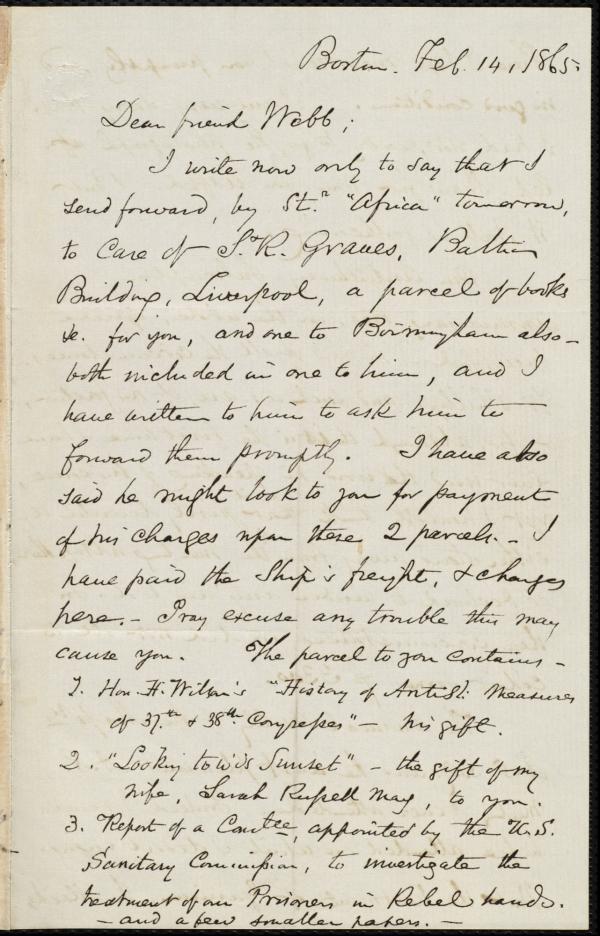 Boston. Feb. 14, 1865.
Dear friend Webb;
I write now only to say that I
send forward, by St.r "Africa" tomorrow,
to Care of S. R. Graves, Baltic
Building, Liverpool, a parcel of books
&c. for you, and one to Birmingham also –
both included in one to him, and I
have written to him to ask him to
forward them promptly. I have also
said he might look to you for payment
of his charges upon these 2 parcels. – I
have paid the Ship's freight, & charges
here. – Pray excuse any trouble this may
cause you. The parcel to you contains –
1. Hon. H. Wilson's "History of AntiSl: Measures
of 37.th & 38th Congresses" – his gift.
2. "Looking tow'ds Sunset" – the gift of my
wife, Sarah Russell May, to you.
3. Report of a Comtee, appointed by the U.S.
Sanitary Commission, to investigate the
treatment of our Prisoners in Rebel hands.
– and a few smaller papers. –